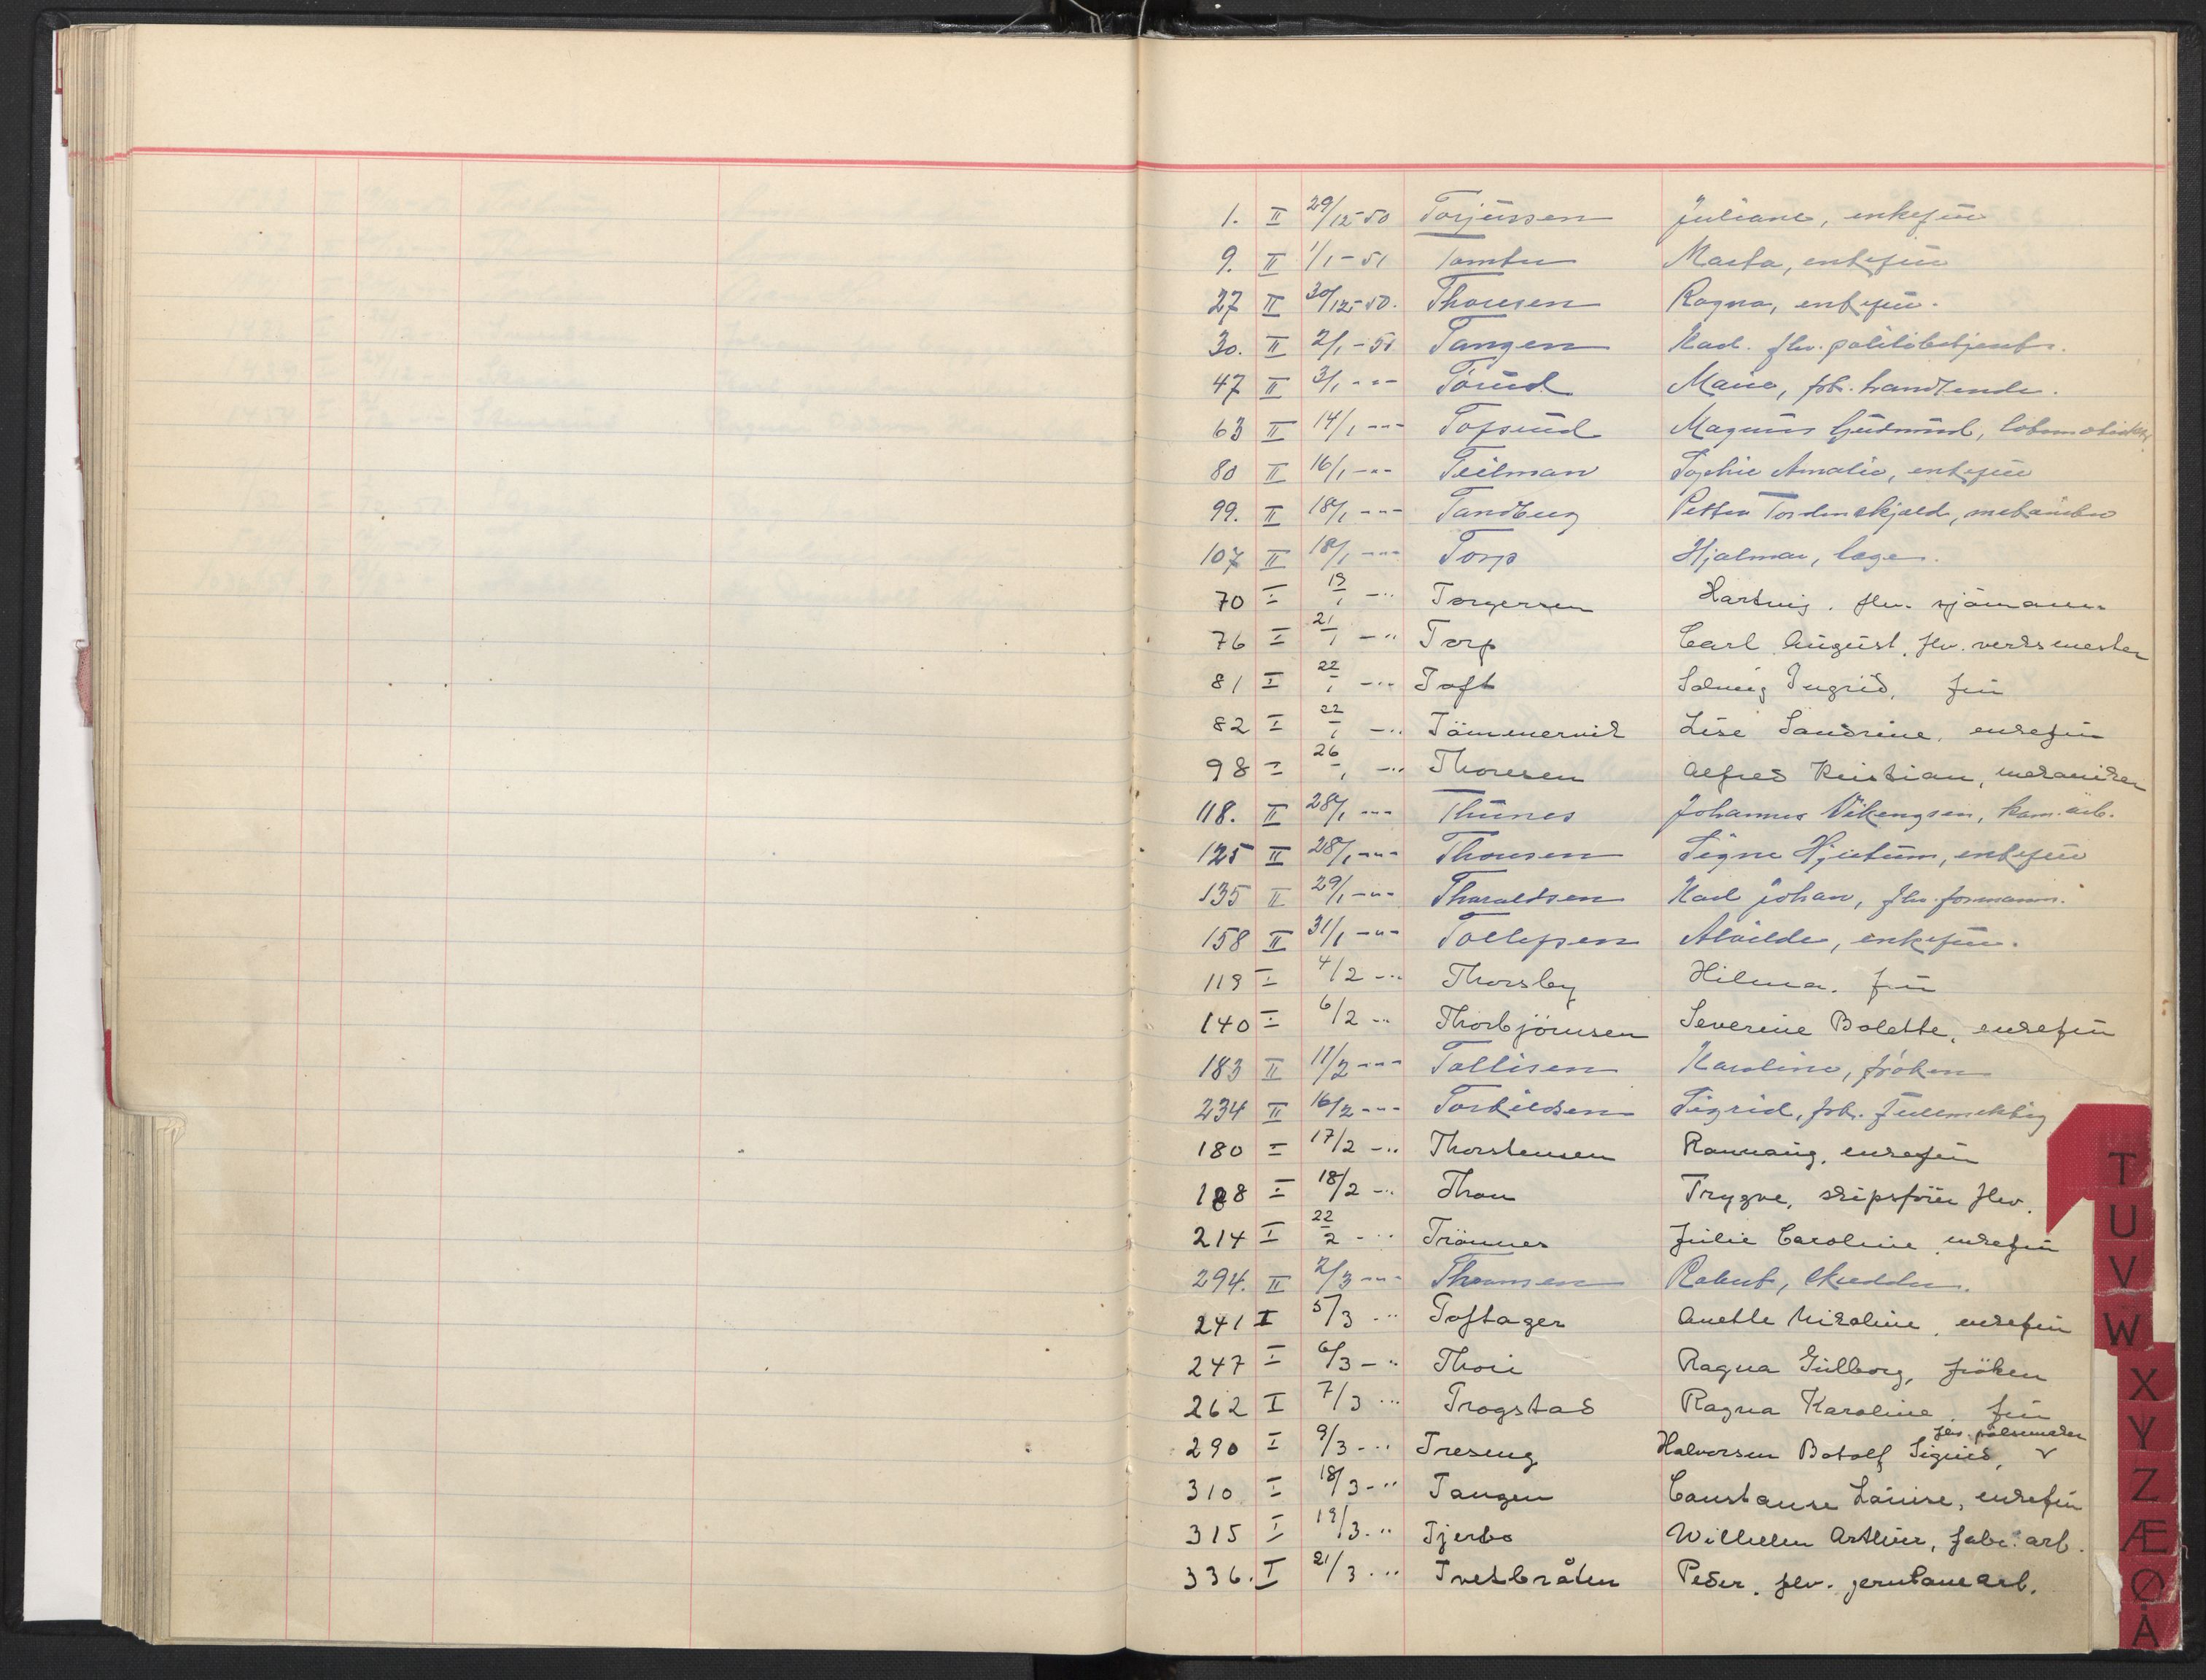 1. II 29/12-50 Torjussen Juliane, enkefru
9. II 1/1-51 Tomter Marta, enkefru
27 II 30/12-50. Thoresen Ragna, enkefru.
30. II 2/1-51 Tangen Karl. fhv. politibetjent.
47 II 3/1 -"- Torud Marie, fhv. handlende.
63 II 14/1 -"- Tofsrud Magnus Gudmund,
80 II 16/1 -"- Teilman Sophie Amalie, enkefru
99. II 18/1 -"- Tandberg Petter Tordenskjold, mekaniker
107 II 18/1 -"- Torp Hjalmar, lege.
70 I 19/1 -" Torgersen Hartvig. fhv. sjömann.
76 I 21/1 -" Torp Carl August. fhv. verksmester
81 I 22/1 -" Toft Solveig Ingrid, fru
82 I 22/1 -" Tömmervik Lise Sandrine. enkefru
98 I 26/1 -" Thoresen Alfred Kristian, mekaniker
118. II 28/1 -"- Thunes Johannes Vikengsen, kom. arb.
125 II 28/1 -"- Thousen Signe, enkefru
135 II 29/1 -"- Tharaldsen Karl Johan, fhv. formann.
158 II 31/1 -"- Tollefsen Alvilde, enkefru.
119 I 4/2 -" Thorsby Hilma. fru
140 I 6/2 -" Thorbjörnsen Severine Bolette, enkefru
183 II 11/2 -"- Tollisen Karoline, fröken
234 II 16/2 -"- Torkildsen Sigrid, fhv. fullmektig
180 I 17/2 -" Thorstensen Rannaug, enkefru
188 I 18/2 -" Thon Trygve, skipsförer fhv.
214 I 22/2 -" Trönnes Julie Caroline, enkefru
294. II 2/3 -"- Thomsen Robert, skredder.
241 I 5/3 -" Toftager Anette Nikoline, enkefru
247 I 6/3 -" Thoii Ragna Gulborg, fröken
262 I 7/3 -" Trogstad Ragna Karoline. fru
fhv. pölsemaker
290 I 9/3 -" Treseng Halvorsen Botolf Sigurd,
310 I 18/3 -" Tangen Constanse Louise, enkefru
315 I 19/3 -" Tjerbo Wilhelm Arthur, fabr. arb.
336. I 21/3 -" Tvetbråten Peder. fhv. jernbanearb.
T
U
V
W
X
Y
Z
Æ
Ø
Å